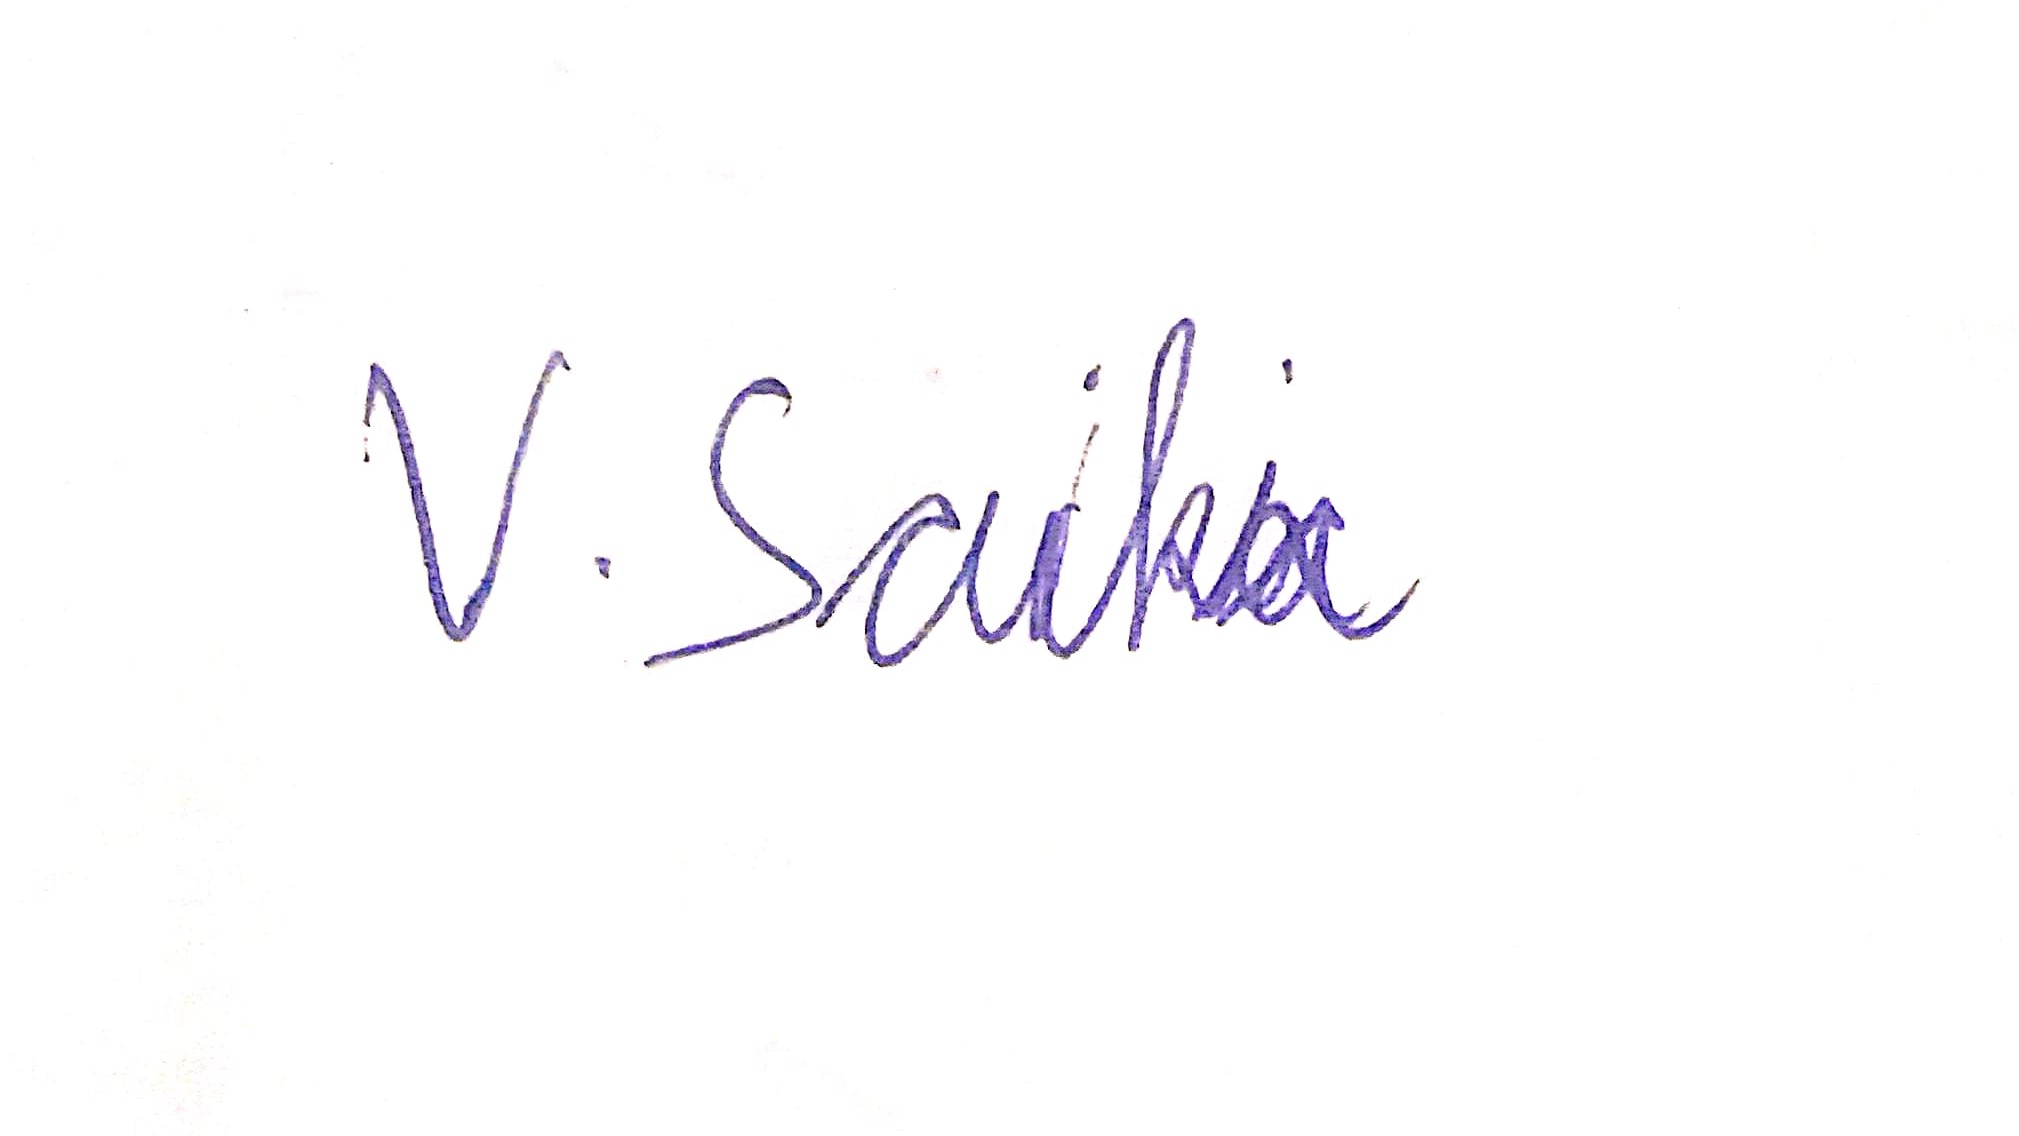 V. Saikia